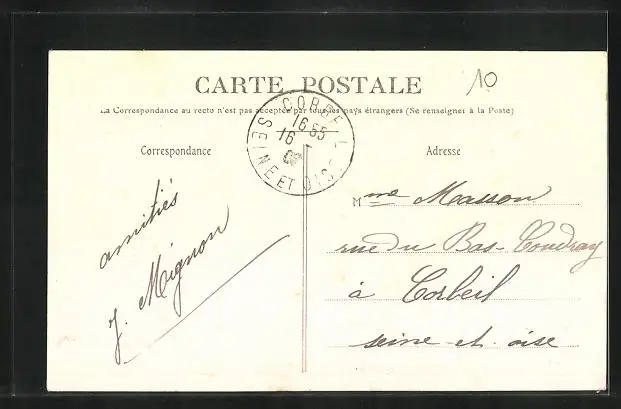 CARTE POSTALE
10
La Correspondance au recto n'est pas acceptée par tous les pays étrangers (Se renseigner à la Poste)
CORBEIL
16 55
16
SEINE ET OISE
Correspondance
Adresse
amitiés
J. Mignon
Mme Masson
rue du Bas-Coudray
à Corbeil
seine-et-oise